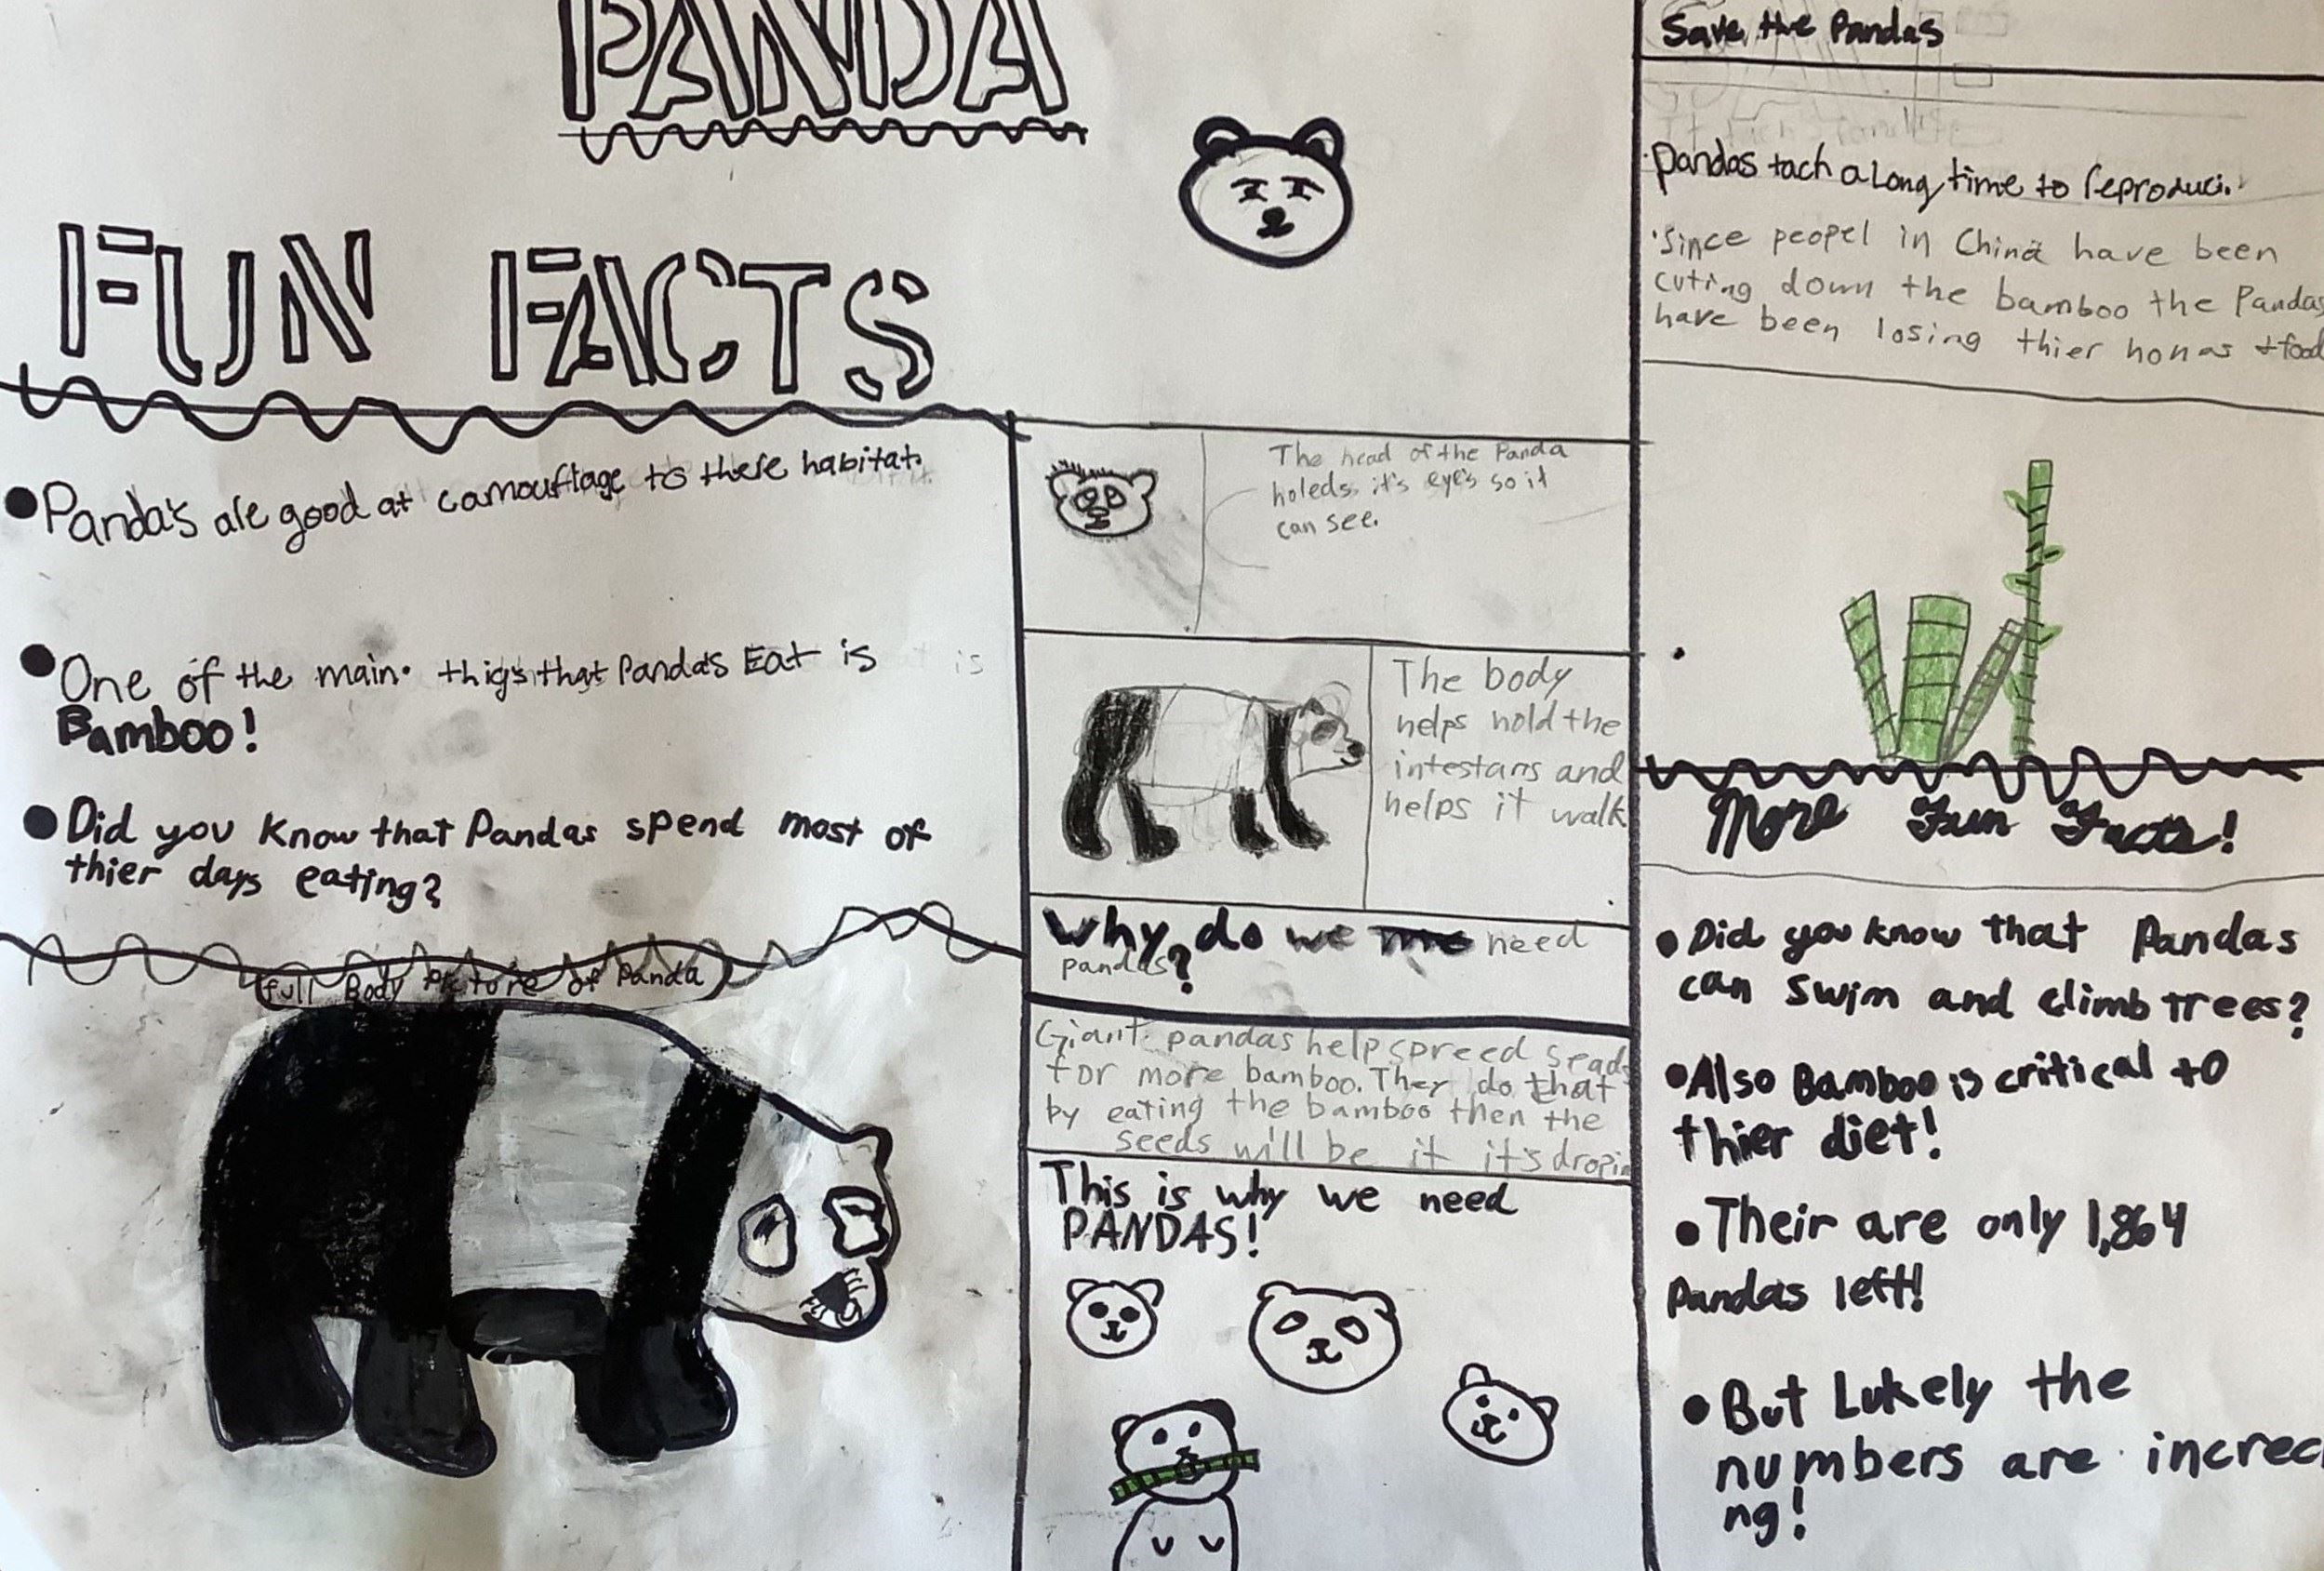 PANDA
FUN FACTS
Panda's are good at camouflage to there habitat.
One of the main thigs that Panda's Eat is
Bamboo!
Did you know that Pandas spend most of
thier days eating?
full Body Picture of Panda
The head of the Panda
holeds it's eye's so it
can see.
The body
helps hold the
intestans and
helps it walk
Why do we need
pandas?
Giant pandas help spreed seads
for more bamboo. They do that
by eating the bamboo then the
seeds will be it it's dropin
This is why we need
PANDAS!
Save the Pandas
Pandas tach a long time to reproduci.
Since peopel in China have been
cuting down the bamboo the Pandas
have been losing thier homes + food
More Fun Facts!
Did you know that Pandas
can swim and climb trees?
Also Bamboo is critical to
thier diet!
Their are only 1,864
Pandas left!
But Lukely the
numbers are increa
ng!